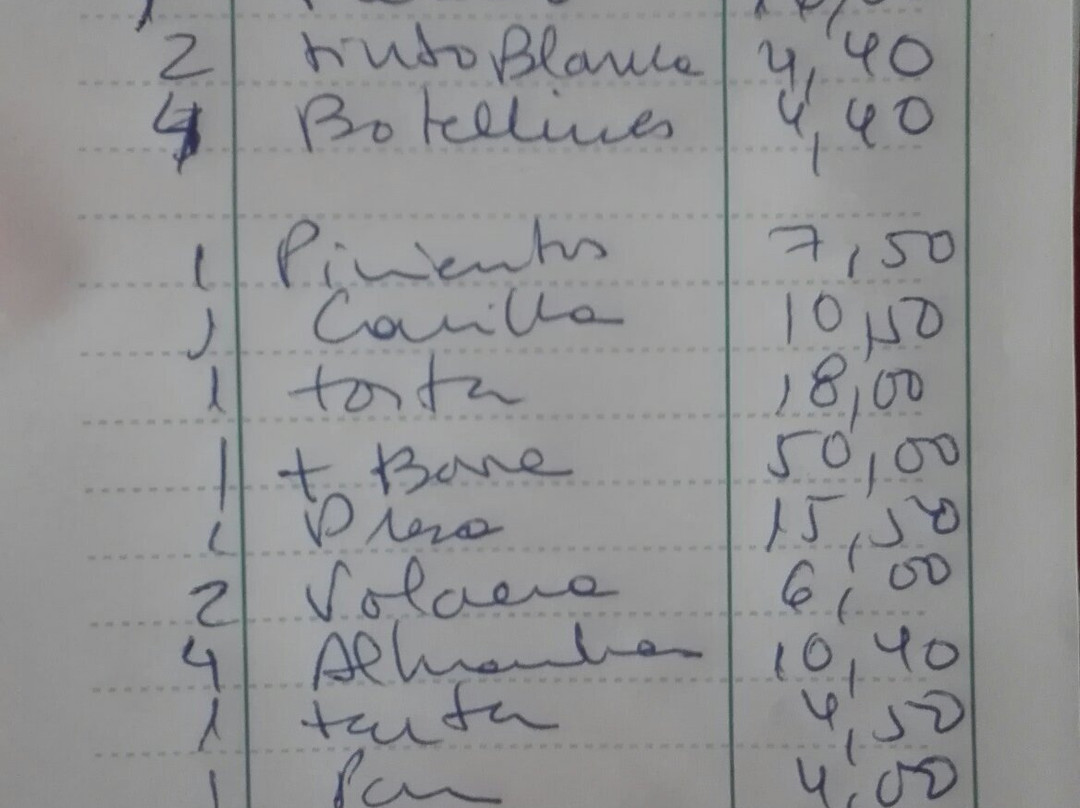 2 tinto Blanca 4,40
4 Botellines 4,40
1 Pimientos 7,50
1 10,50
1 torta 18,00
1 t Bone 50,00
1 Presa 15,50
2 6,00
4 Alhambra 10,40
1 tarta 4,50
1 Pan 4,00